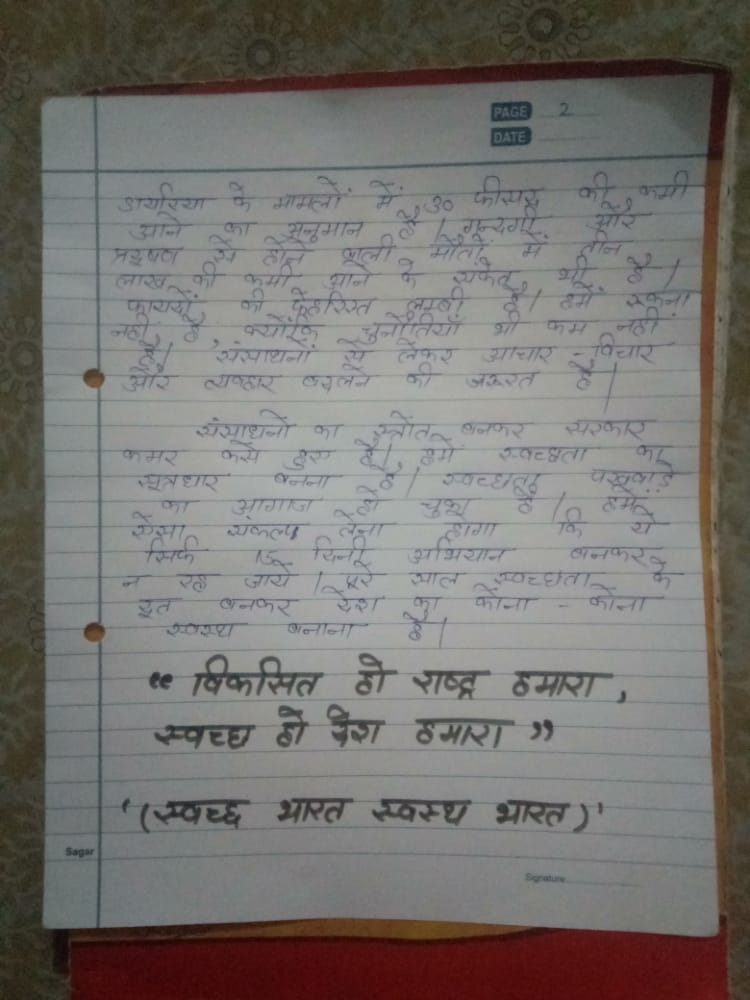 PAGE 2
DATE
डायरिया के मामलों में 30 फीसद की कमी
आने का अनुमान है। गन्दगी और
प्रदूषण से होने वाली मौतों में तीन
लाख की कमी आने के संकेत भी है।
फायदों की फेहरिस्त लम्बी है। हमें रुकना
नहीं है, क्योंकि चुनौतियाँ भी कम नहीं
है। संसाधनों से लेकर आचार - विचार
और व्यवहार बदलने की जरुरत है।
संसाधनों का स्त्रोत बनकर सरकार
कमर कसे हुए है। हमें स्वच्छता का
सूत्रधार बनना है। स्वच्छता पखवाड़े
का आगाज हो चुका है। हमें
ऐसा संकल्प लेना होगा कि ये
सिर्फ 15 दिनी अभियान बनकर
न रह जाये। पूरे साल स्वच्छता के
दूत बनकर देश का कोना - कोना
स्वस्थ बनाना है।
“ विकसित हो राष्ट्र हमारा,
स्वच्छ हो देश हमारा ”
'(स्वच्छ भारत स्वस्थ भारत)'
Sagar
Signature